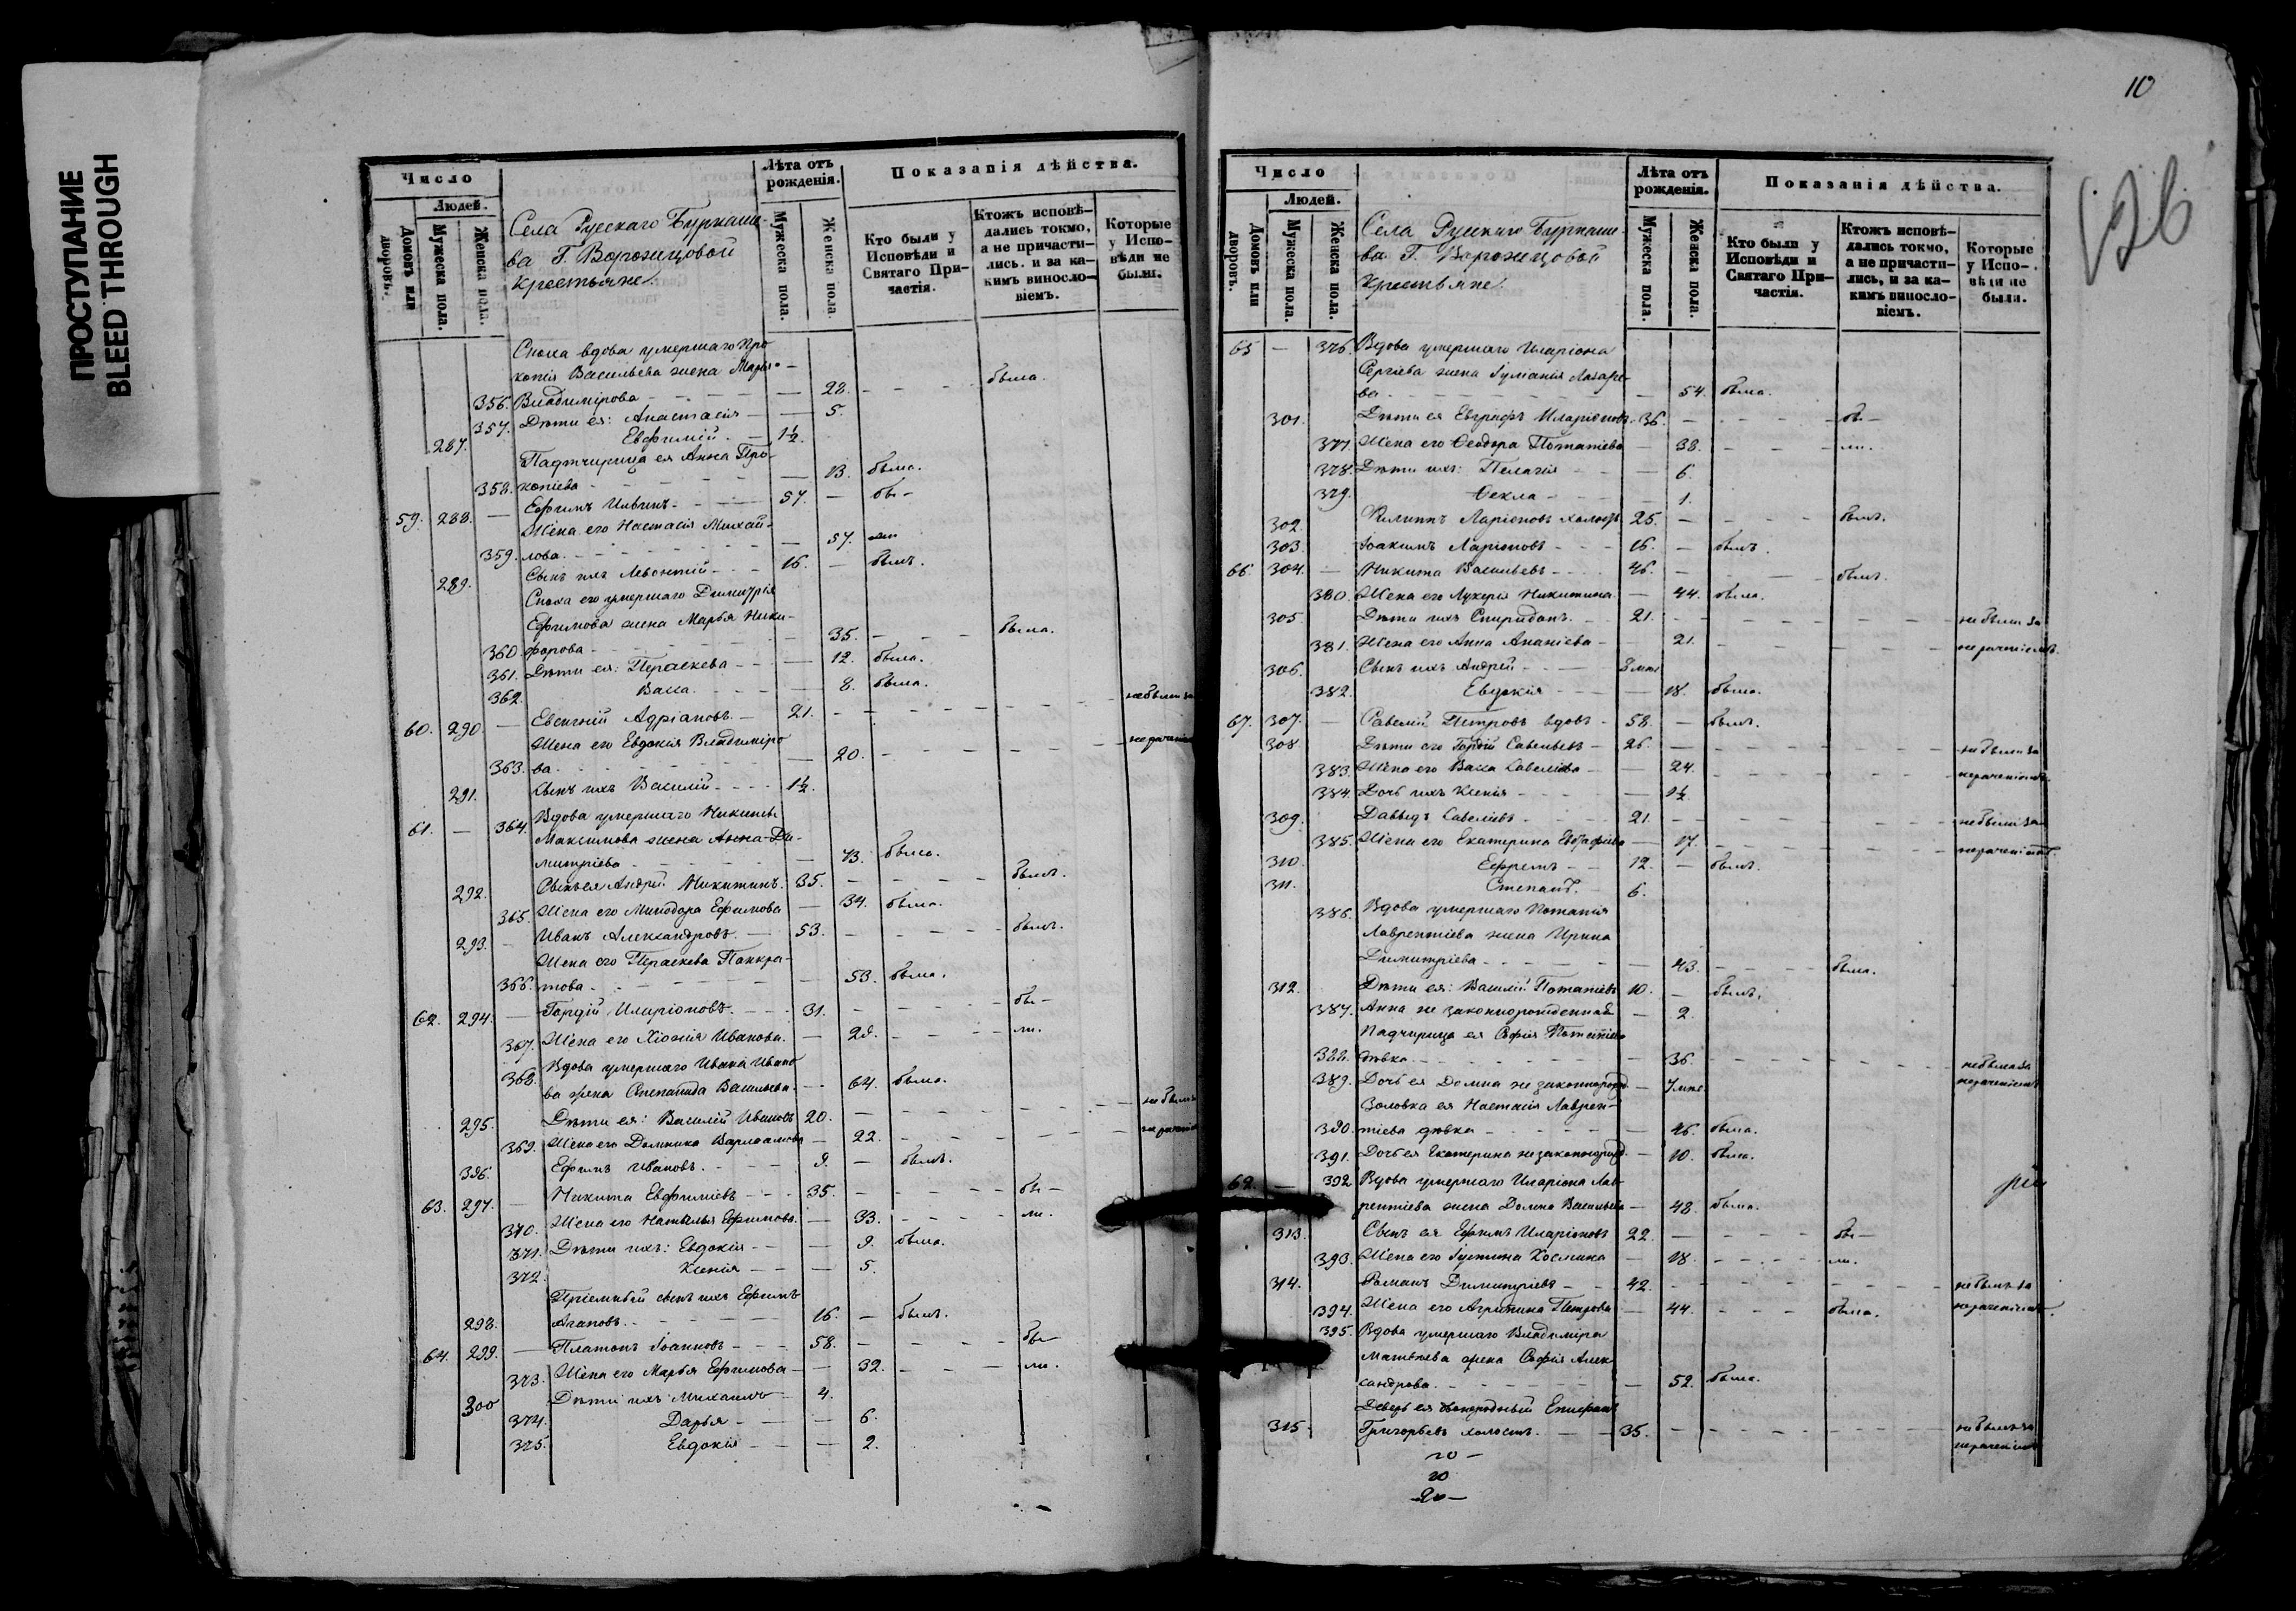 ПРОСТУПАНИЕ
BLEED THROUGH
Число
Людей.
Домовъ или дворовъ.
Мужеска пола.
Женска пола.
Села Русскаго Буркаше-
ва Г. Ворожецовой
крестьяне
Лѣта отъ рожденія.
Мужеска пола.
Женска пола.
Показанія дѣйства.
Кто были у Исповѣди и Святаго При-частія.
Ктожъ исповѣ-дались токмо, а не причасти-лись. и за ка-кимъ винословіемъ.
Которые у Испо-вѣди не были.
Сноха вдова умершаго Про
копія Васильева жена Марья
356. Владимірова — 28. была.
357. Дѣти ея: Анастасія — 5.
287. Евфимій. 1½.
Падчирица ея Анна Про-
358. копіева — 13. была.
59. 288. — Ефимъ 57. — бы-
Жена его Настасія Михай-
359. лова. — 57. ли
289. Сынъ ихъ Левонтій 16. — былъ.
Сноха его умершаго Димитрія
Ефимова жена Марья Ники-
360. форова — 35. была.
361. Дѣти ея: Параскева — 12. была.
362. Васса. — 8. была.
60. 290. — Евгеній Адріановъ. 21. не были за
Жена его Евдокія Владиміро
363. ва. — 20. нерачені
291. Сынъ ихъ Василій 1½.
61. — 364. Вдова умершаго Никиты
Максимова жена Анна Ди-
митріева — 73. была.
292. Сынъ ея Андрей Никитинъ. 35. былъ.
365. Жена его Минодора Ефимова — 34. была.
293. — Иванъ Александровъ. 53. былъ.
Жена его Параскева Панкра-
366. това. — 53. была.
62. 294. — Гордій Иларіоновъ. 31. бы-
367. Жена его Хіонія Иванова. — 28. ли.
368. Вдова умершаго Ивана Ивано
ва жена Степанида Васильева. — 64. была.
295. Дѣти ея: Василій Ивановъ 20. не были
369. Жена его Домника Варлаамова — 22. за нерачені
396. Ефимъ Ивановъ. 9. — былъ.
63. 297. — Никита Евфиміевъ 35. бы-
370. Жена его Наталья Ефимова. — 33. ли.
371. Дѣти ихъ: Евдокія — 9. была.
372. Ксенія — 5.
Пріемный сынъ ихъ Ефимъ
298. Агаповъ. 16. — былъ.
64. 299. — Платонъ Іоанновъ 58. бы-
373. Жена его Марья Ефимова — 32. ли.
300 Дѣти ихъ: Михаилъ 4.
374. Дарья — 6.
375. Евдокія — 2.
10
126
Число
Людей.
Домовъ или дворовъ.
Мужеска пола.
Женска пола.
Села Русскаго Буркаше-
ва Г. Ворожецовой
крестьяне
Лѣта отъ рожденія.
Мужеска пола.
Женска пола.
Показанія дѣйства.
Кто были у Исповѣди и Святаго При-частія.
Ктожъ исповѣ-дались токмо, а не причасти-лись, и за ка-кимъ винословіемъ.
Которые у Испо-вѣди не были.
65 — 376. Вдова умершаго Иларіона
Сергіева жена Іуліанія Лазаре-
ва — 54. была.
301. Дѣти ея Евграфъ Иларіоновъ. 36. бы-
377. Жена его Ѳеодора Потапіева — 38. ли.
378. Дѣти ихъ: Пелагія — 6.
379. Ѳекла — 1.
302. Филиппъ Ларіоновъ холостъ 25. — былъ.
303. Іоакимъ Ларіоновъ 16. — былъ.
66. 304. — Никита Васильевъ 46. — былъ.
380. Жена его Лукерія Никитина — 44. была.
305. Дѣти ихъ Спиридонъ. 21. не были за
381. Жена его Анна Ананіева 21. нераченіемъ
306. Сынъ ихъ Андрей 8 мѣс
382. Евдокія — 18. была.
67. 307. — Савелій Петровъ вдовъ 58. — былъ.
308 Дѣти его Гордій Савельевъ 26. не были за
383. Жена его Васса Савеліева — 24. нераченіемъ
384. Дочь ихъ Ксенія — 1½.
309. Давыдъ Савеліевъ 21. не были за
385. Жена его Екатерина — 17. нераченіемъ.
310. Ефремъ 12. — былъ.
311. Степанъ. 6.
386. Вдова умершаго Потапія
Лаврентіева жена Ирина
Димитріева — 43. была.
312. Дѣти ея: Василій Потапіевъ 10. — былъ.
387. Анна не законнорожденная — 2.
Падчирица ея Софія Потапіева
388. дѣвка — 36. не была за
389. Дочь ея Домна не законнорожд — 7 мѣс. нераченіемъ
Золовка ея Настасія Лаврен-
390. тіева дѣвка — 26. была.
391. Дочь ея Екатерина незаконнорожд. — 10. была.
68. — 392 Вдова умершаго Иларіона Лав-
рентіева жена Домна Васильева — 48. была.
313. Сынъ ея Ефимъ Иларіоновъ 22. — бы-
393. Жена его Іустина Космина — 18. ли.
314. Романъ Димитріевъ 42. не былъ за
394. Жена его Агрипина Петрова — 44. была. нераченіемъ
395. Вдова умершаго Владиміра
Матвѣева жена Софія Алек-
сандрова. — 52. была.
Деверь ея двоюродный Епифанъ
315. Григорьевъ холостъ. 35. не былъ за
нераченіемъ